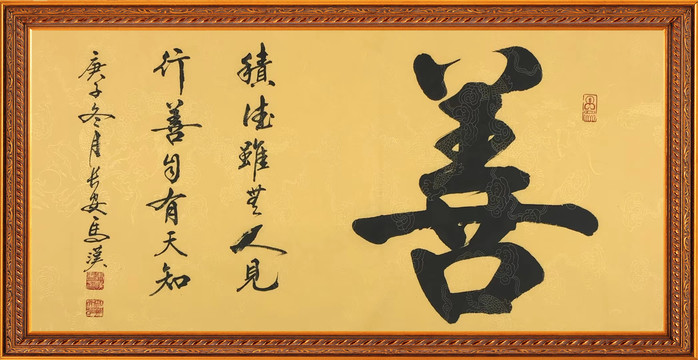 善
積德雖無人見
行善自有天知
庚子冬月長安馬漢